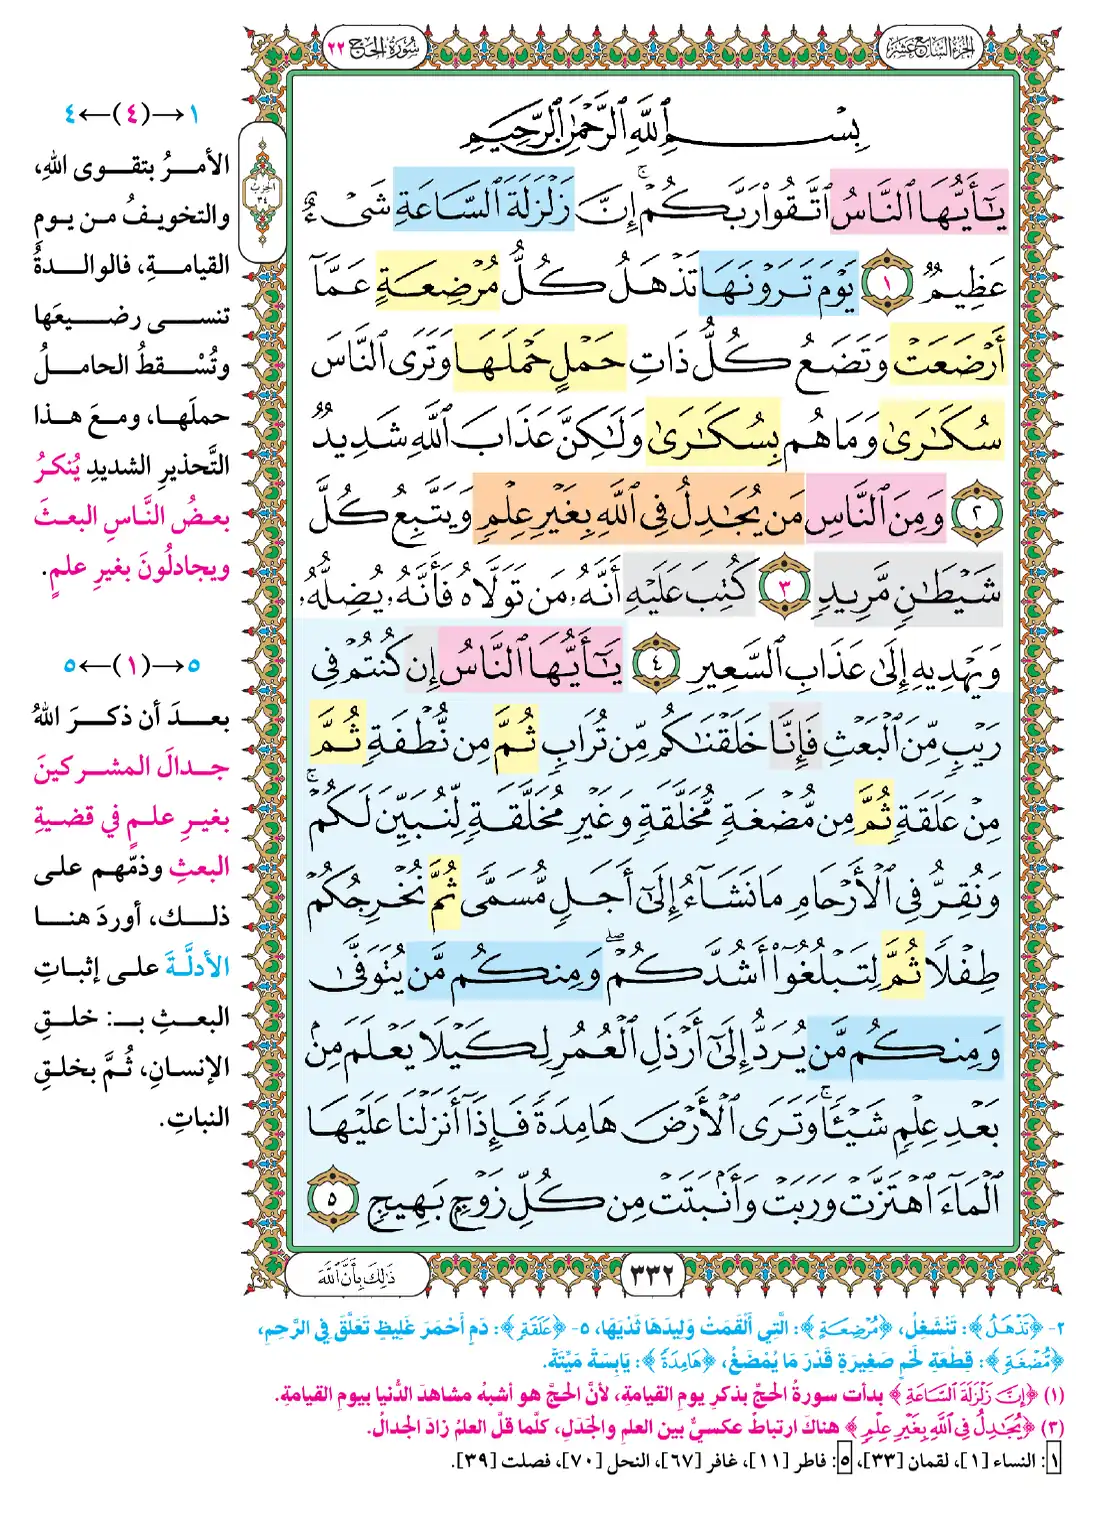 الجزء السابع عشر
سورة الحج ٢٢
الحزب ٣٤
بِسْمِ اللَّهِ الرَّحْمَٰنِ الرَّحِيمِ
يَٰٓأَيُّهَا ٱلنَّاسُ ٱتَّقُوا۟ رَبَّكُمْ ۚ إِنَّ زَلْزَلَةَ ٱلسَّاعَةِ شَىْءٌ
عَظِيمٌ ١ يَوْمَ تَرَوْنَهَا تَذْهَلُ كُلُّ مُرْضِعَةٍ عَمَّآ
أَرْضَعَتْ وَتَضَعُ كُلُّ ذَاتِ حَمْلٍ حَمْلَهَا وَتَرَى ٱلنَّاسَ
سُكَٰرَىٰ وَمَا هُم بِسُكَٰرَىٰ وَلَٰكِنَّ عَذَابَ ٱللَّهِ شَدِيدٌ
٢ وَمِنَ ٱلنَّاسِ مَن يُجَٰدِلُ فِى ٱللَّهِ بِغَيْرِ عِلْمٍ وَيَتَّبِعُ كُلَّ
شَيْطَٰنٍ مَّرِيدٍ ٣ كُتِبَ عَلَيْهِ أَنَّهُۥ مَن تَوَلَّاهُ فَأَنَّهُۥ يُضِلُّهُۥ
وَيَهْدِيهِ إِلَىٰ عَذَابِ ٱلسَّعِيرِ ٤ يَٰٓأَيُّهَا ٱلنَّاسُ إِن كُنتُمْ فِى
رَيْبٍ مِّنَ ٱلْبَعْثِ فَإِنَّا خَلَقْنَٰكُم مِّن تُرَابٍ ثُمَّ مِن نُّطْفَةٍ ثُمَّ
مِنْ عَلَقَةٍ ثُمَّ مِن مُّضْغَةٍ مُّخَلَّقَةٍ وَغَيْرِ مُخَلَّقَةٍ لِّنُبَيِّنَ لَكُمْ ۚ
وَنُقِرُّ فِى ٱلْأَرْحَامِ مَا نَشَآءُ إِلَىٰٓ أَجَلٍ مُّسَمًّى ثُمَّ نُخْرِجُكُمْ
طِفْلًا ثُمَّ لِتَبْلُغُوٓا۟ أَشُدَّكُمْ ۖ وَمِنكُم مَّن يُتَوَفَّىٰ
وَمِنكُم مَّن يُرَدُّ إِلَىٰٓ أَرْذَلِ ٱلْعُمُرِ لِكَيْلَا يَعْلَمَ مِنۢ
بَعْدِ عِلْمٍ شَيْـًٔا ۚ وَتَرَى ٱلْأَرْضَ هَامِدَةً فَإِذَآ أَنزَلْنَا عَلَيْهَا
ٱلْمَآءَ ٱهْتَزَّتْ وَرَبَتْ وَأَنۢبَتَتْ مِن كُلِّ زَوْجٍۭ بَهِيجٍ ٥
٣٣٢
ذَٰلِكَ بِأَنَّ ٱللَّهَ
١→(٤)←٤
الأمرُ بتقوى اللهِ،
والتخويفُ من يومِ
القيامةِ، فالوالدةُ
تنسى رضيعَها
وتُسْقطُ الحاملُ
حملَها، ومعَ هذا
التَّحذيرِ الشديدِ يُنكرُ
بعضُ النَّاسِ البعثَ
ويجادلُونَ بغيرِ علمٍ.
٥→(١)←٥
بعدَ أن ذكرَ اللهُ
جدالَ المشركينَ
بغيرِ علمٍ في قضيةِ
البعثِ وذمّهم على
ذلك، أوردَ هنا
الأدلَّةَ على إثباتِ
البعثِ بـ: خلقِ
الإنسانِ، ثُمَّ بخلقِ
النباتِ.
٢- ﴿تَذْهَلُ﴾: تَنْشَغِلُ، ﴿مُرْضِعَةٍ﴾: الَّتِي أَلْقَمَتْ وَلِيدَهَا ثَدْيَهَا، ٥- ﴿عَلَقَةٍ﴾: دَمٍ أَحْمَرَ غَلِيظٍ تَعَلَّقَ فِي الرَّحِمِ،
﴿مُّضْغَةٍ﴾: قِطْعَةِ لَحْمٍ صَغِيرَةٍ قَدْرَ مَا يُمْضَغُ، ﴿هَامِدَةً﴾: يَابِسَةً مَيْتَةً.
(١) ﴿إِنَّ زَلْزَلَةَ ٱلسَّاعَةِ﴾ بدأت سورةُ الحجِّ بذكرِ يومِ القيامةِ، لأنَّ الحجَّ هو أشبهُ مشاهدَ الدُّنيا بيومِ القيامةِ.
(٣) ﴿يُجَٰدِلُ فِى ٱللَّهِ بِغَيْرِ عِلْمٍ﴾ هناكَ ارتباطٌ عكسيٌّ بين العلمِ والجَدَلِ، كلَّما قلَّ العلمُ زادَ الجدالُ.
١: النساء [١]، لقمان [٣٣]، ٥: فاطر [١١]، غافر [٦٧]، النحل [٧٠]، فصلت [٣٩].